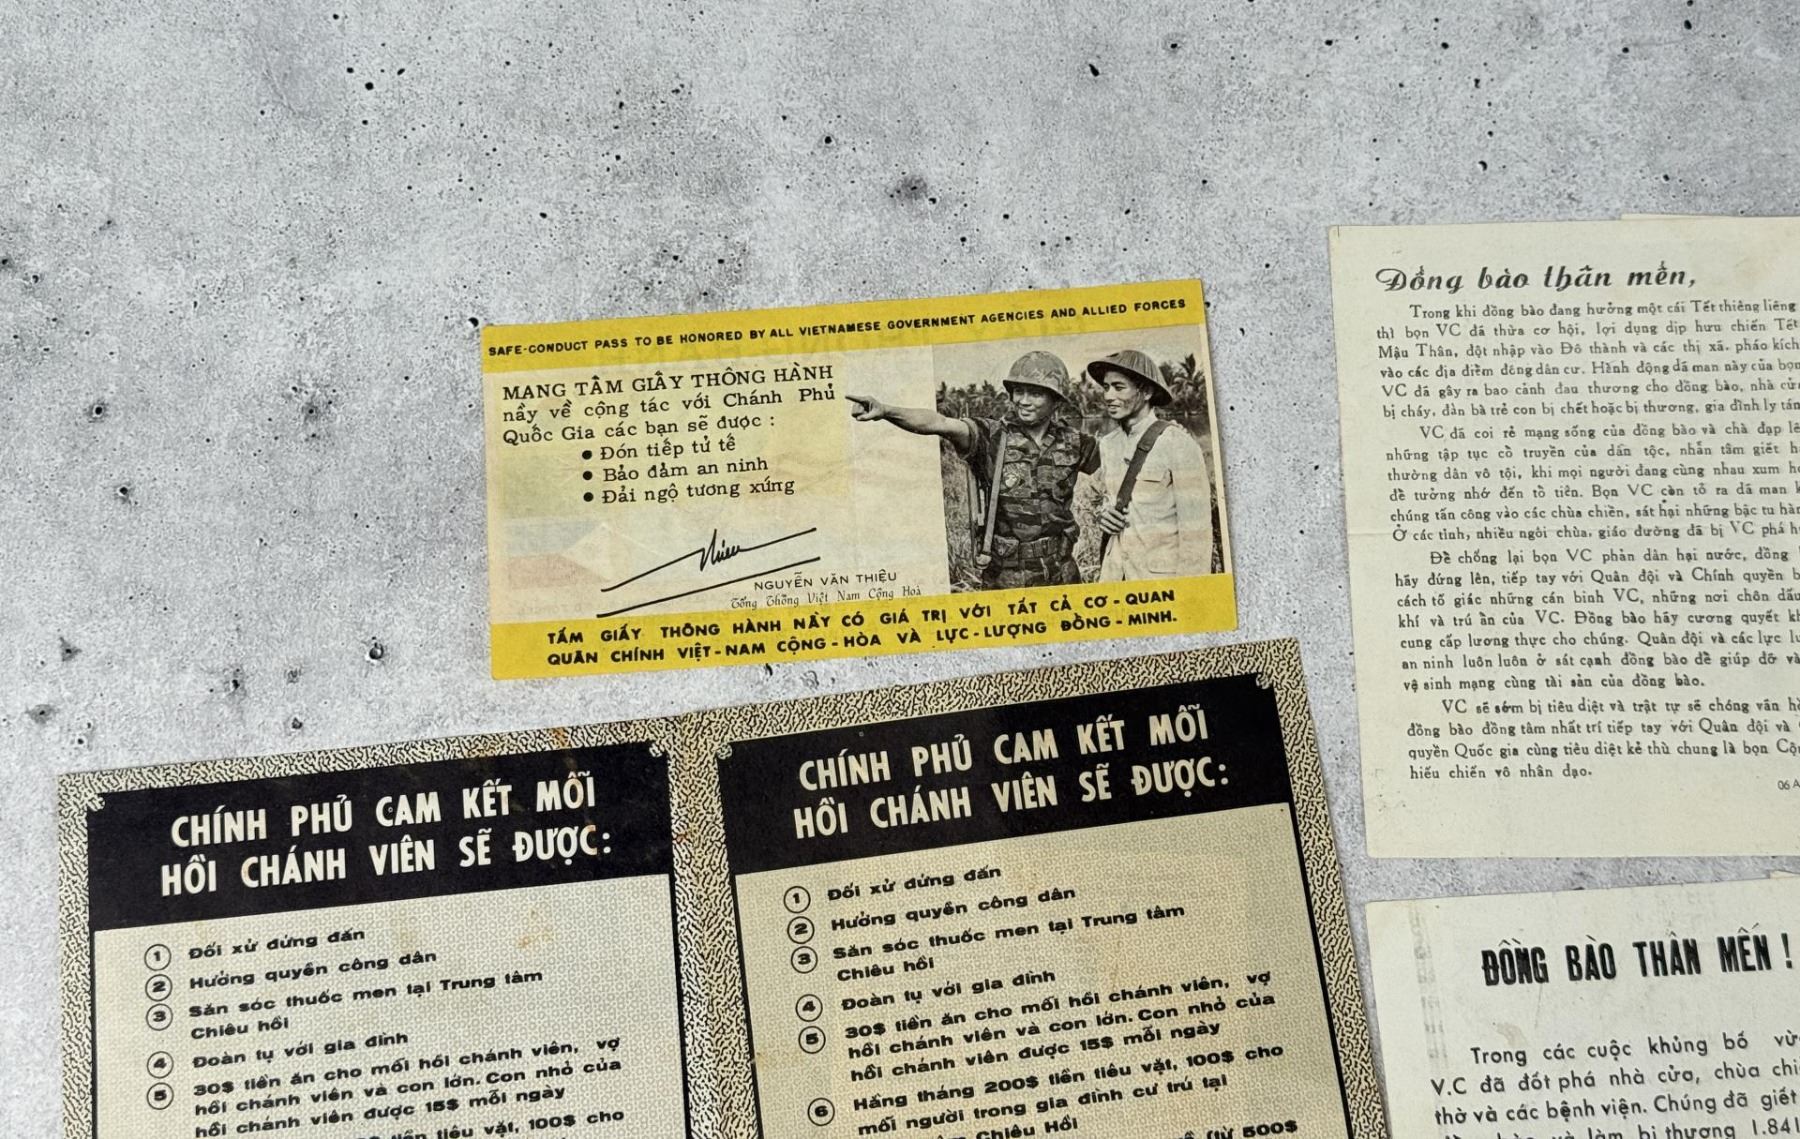 SAFE-CONDUCT PASS TO BE HONORED BY ALL VIETNAMESE GOVERNMENT AGENCIES AND ALLIED FORCES
MANG TẤM GIẤY THÔNG HÀNH
nầy về cộng tác với Chánh Phủ
Quốc Gia các bạn sẽ được :
● Đón tiếp tử tế
● Bảo đảm an ninh
● Đải ngộ tương xứng
NGUYỄN VĂN THIỆU
Tổng Thống Việt Nam Cộng Hoà
TẤM GIẤY THÔNG HÀNH NẦY CÓ GIÁ TRỊ VỚI TẤT CẢ CƠ - QUAN
QUÂN CHÍNH VIỆT - NAM CỘNG - HÒA VÀ LỰC - LƯỢNG ĐỒNG - MINH.
Đồng bào thân mến,
Trong khi đồng bào đang hưởng một cái Tết thiêng liêng
thì bọn VC đã thừa cơ hội, lợi dụng dịp hưu chiến Tết
Mậu Thân, đột nhập vào Đô thành và các thị xã, pháo kích
vào các địa điểm đông dân cư. Hành động dã man này của bọn
VC đã gây ra bao cảnh đau thương cho đồng bào, nhà cửa
bị cháy, đàn bà trẻ con bị chết hoặc bị thương, gia đình ly tán
VC đã coi rẻ mạng sống của đồng bào và chà đạp
những tập tục cổ truyền của dân tộc, nhẫn tâm giết
thường dân vô tội, khi mọi người đang cùng nhau xum
để tưởng nhớ đến tổ tiên. Bọn VC còn tỏ ra dã man
chúng tấn công vào các chùa chiền, sát hại những bậc tu
Ở các tỉnh, nhiều ngôi chùa, giáo đường đã bị VC phá
Để chống lại bọn VC phản dân hại nước, đồng
hãy đứng lên, tiếp tay với Quân đội và Chính quyền
cách tố giác những cán binh VC, những nơi chôn dấu
khí và trú ẩn của VC. Đồng bào hãy cương quyết
cung cấp lương thực cho chúng. Quân đội và các lực
an ninh luôn luôn ở sát cạnh đồng bào để giúp đỡ và
vệ sinh mạng cùng tài sản của đồng bào.
VC sẽ sớm bị tiêu diệt và trật tự sẽ chóng vãn
đồng bào đồng tâm nhất trí tiếp tay với Quân đội và
quyền Quốc gia cùng tiêu diệt kẻ thù chung là bọn
hiếu chiến vô nhân đạo.
06
CHÍNH PHỦ CAM KẾT MỖI
HỒI CHÁNH VIÊN SẼ ĐƯỢC:
1 Đối xử đứng đắn
2 Hưởng quyền công dân
3 Săn sóc thuốc men tại Trung tâm
Chiêu hồi
4 Đoàn tụ với gia đình
5 30$ tiền ăn cho mối hồi chánh viên, vợ
hồi chánh viên và con lớn. Con nhỏ của
hồi chánh viên được 15$ mỗi ngày
tiền tiêu vặt, 100$ cho
CHÍNH PHỦ CAM KẾT MỖI
HỒI CHÁNH VIÊN SẼ ĐƯỢC:
1 Đối xử đứng đắn
2 Hưởng quyền công dân
3 Săn sóc thuốc men tại Trung tâm
Chiêu hồi
4 Đoàn tụ với gia đình
5 30$ tiền ăn cho mối hồi chánh viên, vợ
hồi chánh viên và con lớn. Con nhỏ của
hồi chánh viên được 15$ mỗi ngày
6 Hằng tháng 200$ tiền tiêu vặt, 100$ cho
mối người trong gia đình cư trú tại
Chiêu Hồi
(từ 500$
ĐỒNG BÀO THÂN MẾN !
Trong các cuộc khủng bố
V.C đã đốt phá nhà cửa, chùa
thờ và các bệnh viện. Chúng đã giết
và làm bị thương 1.841